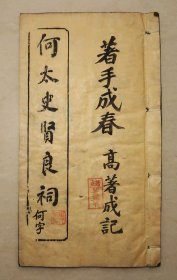 著手成春
高著成記
何太史賢良祠
何字